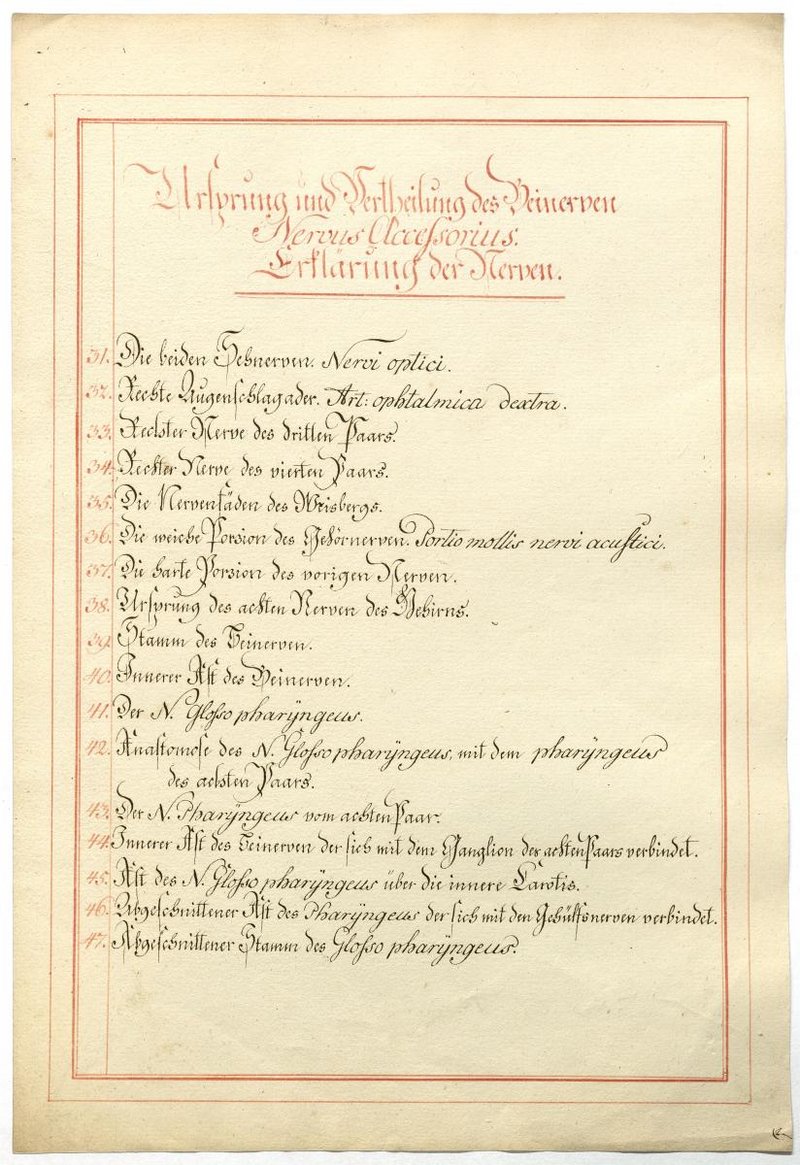 Ursprung und Vertheilung des Beinerven
Nervus Accessorius.
Erklärung der Nerven.
31. Die beiden Sehnerven. Nervi optici.
32. Rechte Augenschlagader. Art: ophtalmica dextra.
33. Rechter Nerve des dritten Paars.
34. Rechter Nerve des vierten Paars.
35. Die Nervenfäden des Wrisbergs.
36. Die weiche Porzion des Gehörnerven. Portio mollis nervi acustici.
37. Die harte Porzion des vorigen Nerven.
38. Ursprung des achten Nerven des Gehirns.
39. Stamm des Beinerven.
40. Innerer Ast des Beinerven.
41. Der N. Glosso pharÿngeus.
42. Anastomose des N. Glosso pharÿngeus, mit dem pharÿngeus
des achten Paars.
43. Der N. Pharÿngeus vom achten Paar.
44. Innerer Ast des Beinerven der sich mit dem Ganglion der achten Paars verbindet.
45. Ast des N. Glosso pharÿngeus über die innere Carotis.
46. Abgeschnittener Ast des Pharÿngeus der sich mit den Gehülfsnerven verbindet.
47. Abgeschnittener Stamm des Glosso pharÿngeus.